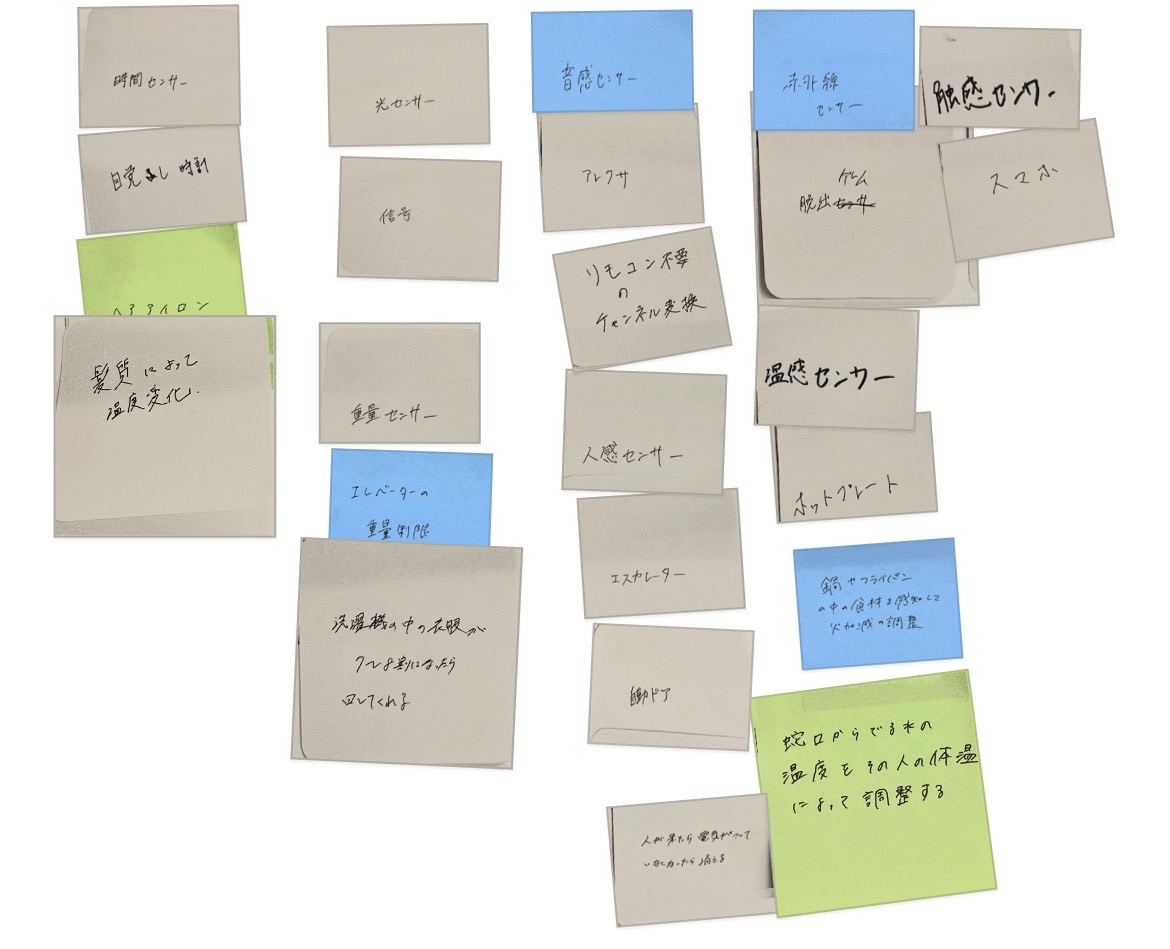 時間センサー
目覚まし時計
ヘアアイロン
髪質によって
温度変化.
光センサー
信号
重量センサー
エレベーターの
重量制限
洗濯機の中の衣服が
7〜8割になったら
回してくれる
音感センサー
アレクサ
リモコン不要
の
チャンネル変換
人感センサー
エスカレーター
自動ドア
人が来たら電気がついて
いなくなったら消える
赤外線
センサー
ゲーム
脱出
触感センサー
スマホ
温感センサー
ホットプレート
鍋やフライパン
の中の食材を感知して
火加減の調整
蛇口からでる水の
温度をその人の体温
によって調整する